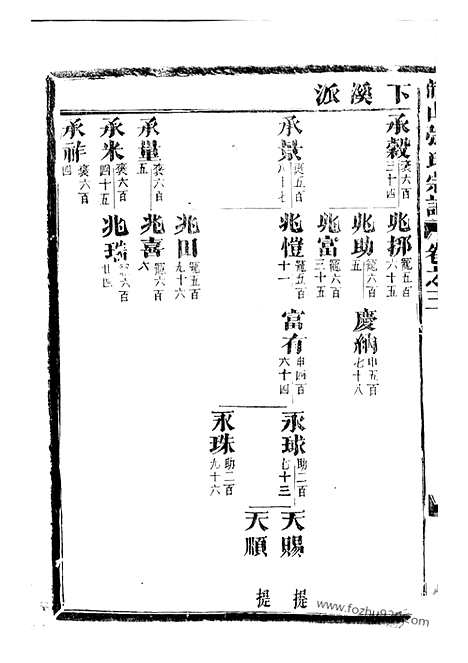 下溪派
承穀 裘六百三十四
兆挪 寵六百六十五
兆助 寵六百五
慶納 申五百七十八
兆富 寵六百三十五
承景
兆愷 寵五百十一
富有 申四百六十四
永球 助二百七十三
天賜 提
天順 提
永珠 助二百九十六
兆田 寵五百九十六
承量 裘六百五
兆喜 寵六百六
承米 裘六百四十五
兆瑞
承祚 裘六百四
卷之三
www.fozhu920.com